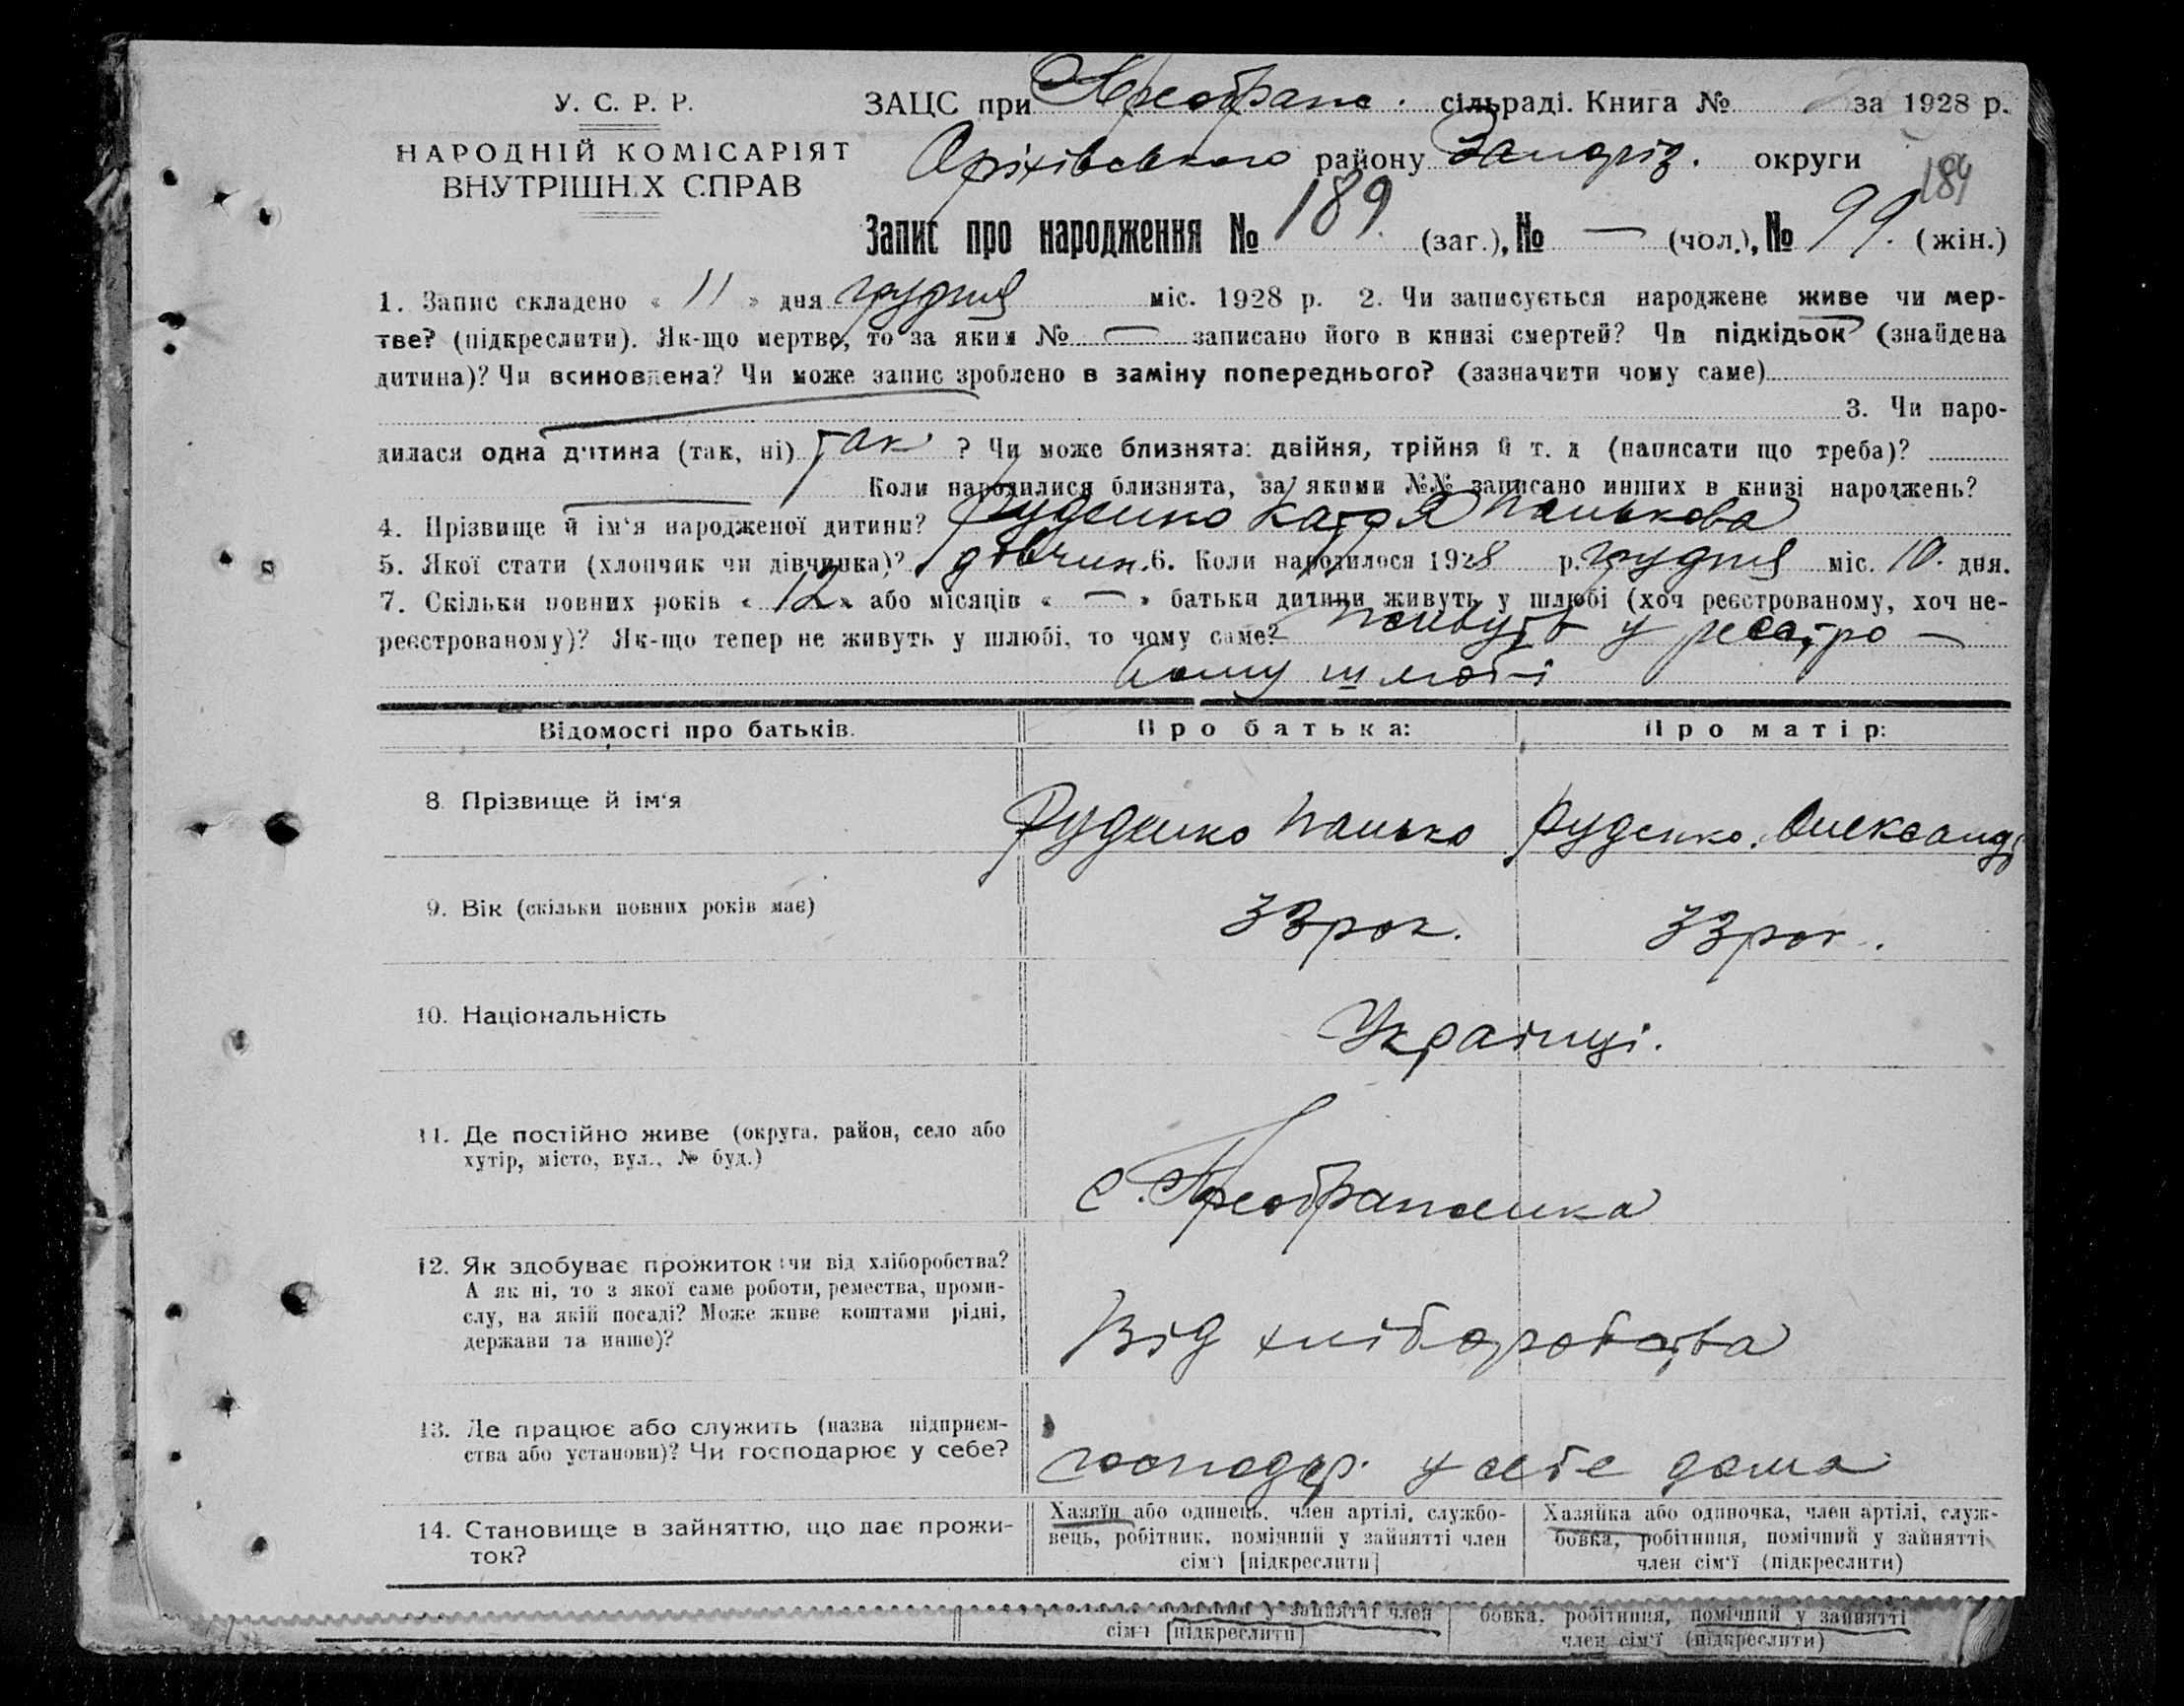 У. С. Р. Р.
НАРОДНІЙ КОМІСАРІЯТ
ВНУТРІШН.Х СПРАВ
ЗАЦС при Преображ. сільраді. Книга № за 1928 р.
Оріхівського району Запоріз. округи
189
Запис про народження № 189. (заг.), № — (чол.), № 99. (жін.)
1. Запис складено « 11 » дня грудня міс. 1928 р. 2. Чи записується народжене живе чи мер-
тве? (підкреслити). Як-що мертве, то за яким № — записано його в книзі смертей? Чи підкідьок (знайдена
дитина)? Чи всиновлена? Чи може запис зроблено в заміну попереднього? (зазначити чому саме)
3. Чи наро-
дилася одна дитина (так, ні) так ? Чи може близнята: двійня, трійня й т. д (написати що треба)?
Коли народилися близнята, за якими №№ записано инших в книзі народжень?
4. Прізвище й ім'я народженої дитини? Руденко Катя Панькова
5. Якої стати (хлопчик чи дівчинка)? дівчин. 6. Коли народилося 1928 р. грудня міс. 10. дня.
7. Скільки повних років « 12 » або місяців « — » батьки дитини живуть у шлюбі (хоч реєстрованому, хоч не-
реєстрованому)? Як-що тепер не живуть у шлюбі, то чому саме? живуть у реєстро —
ваному шлюбі
Відомості про батьків. Про батька: Про матір:
8. Прізвище й ім'я Руденко Панько Руденко. Олександ
9. Вік (скільки повних років має) 33 рок. 33 рок.
10. Національність Українці.
11. Де постійно живе (округа, район, село або
хутір, місто, вул., № буд.)
с. Преображенка
12. Як здобуває прожиток: чи від хліборобства?
А як ні, то з якої саме роботи, ремества, проми-
слу, на якій посаді? Може живе коштами рідні,
держави та инше)?
Від хліборобства
13. Де працює або служить (назва підприєм-
ства або установи)? Чи господарює у себе?
господар. у себе дома
14. Становище в зайняттю, що дає прожи-
ток?
Хазяїн або одинець, член артілі, службо-
вець, робітник, помічний у зайнятті член
сім'ї [підкреслити]
Хазяйка або одиночка, член артілі, служ-
бовка, робітниця, помічний у зайнятті
член сім'ї (підкреслити)
помічний у зайнятті член
сім'ї [підкреслити]
бовка, робітниця, помічний у зайнятті
член сім'ї (підкреслити)